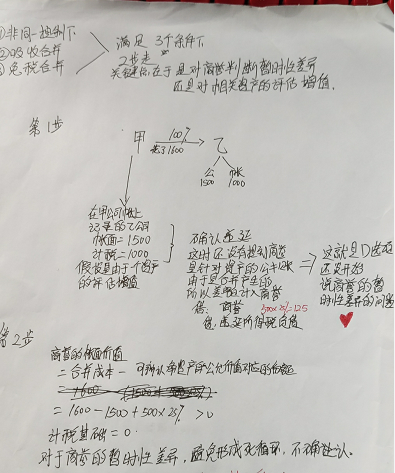 ①非同一控制下
②吸收合并
③免税合并
满足3个条件下
2步走
关键点在于是对商誉判断暂时性差异
还是对相关资产的评估增值.
第1步
甲 100% 乙
花了1600
公 账
1500 1000
在甲公司账上
记录的乙公司
账面=1500
计税=1000
假设是由于个别资产
的评估增值
不确认递延
这时还没有提到商誉
是针对资产的公≠账
由于是合并产生的
所以差额计入商誉
借:商誉 500×25%=125
贷:递延所得税负债
这就是D选项
还没开始
说商誉的暂
时性差异的问题
第2步
商誉的账面价值
=合并成本-可辨认净资产的公允价值对应的份额
=1600-1500+500×25% >0
计税基础=0.
对于商誉的暂时性差异,避免形成死循环,不确认.